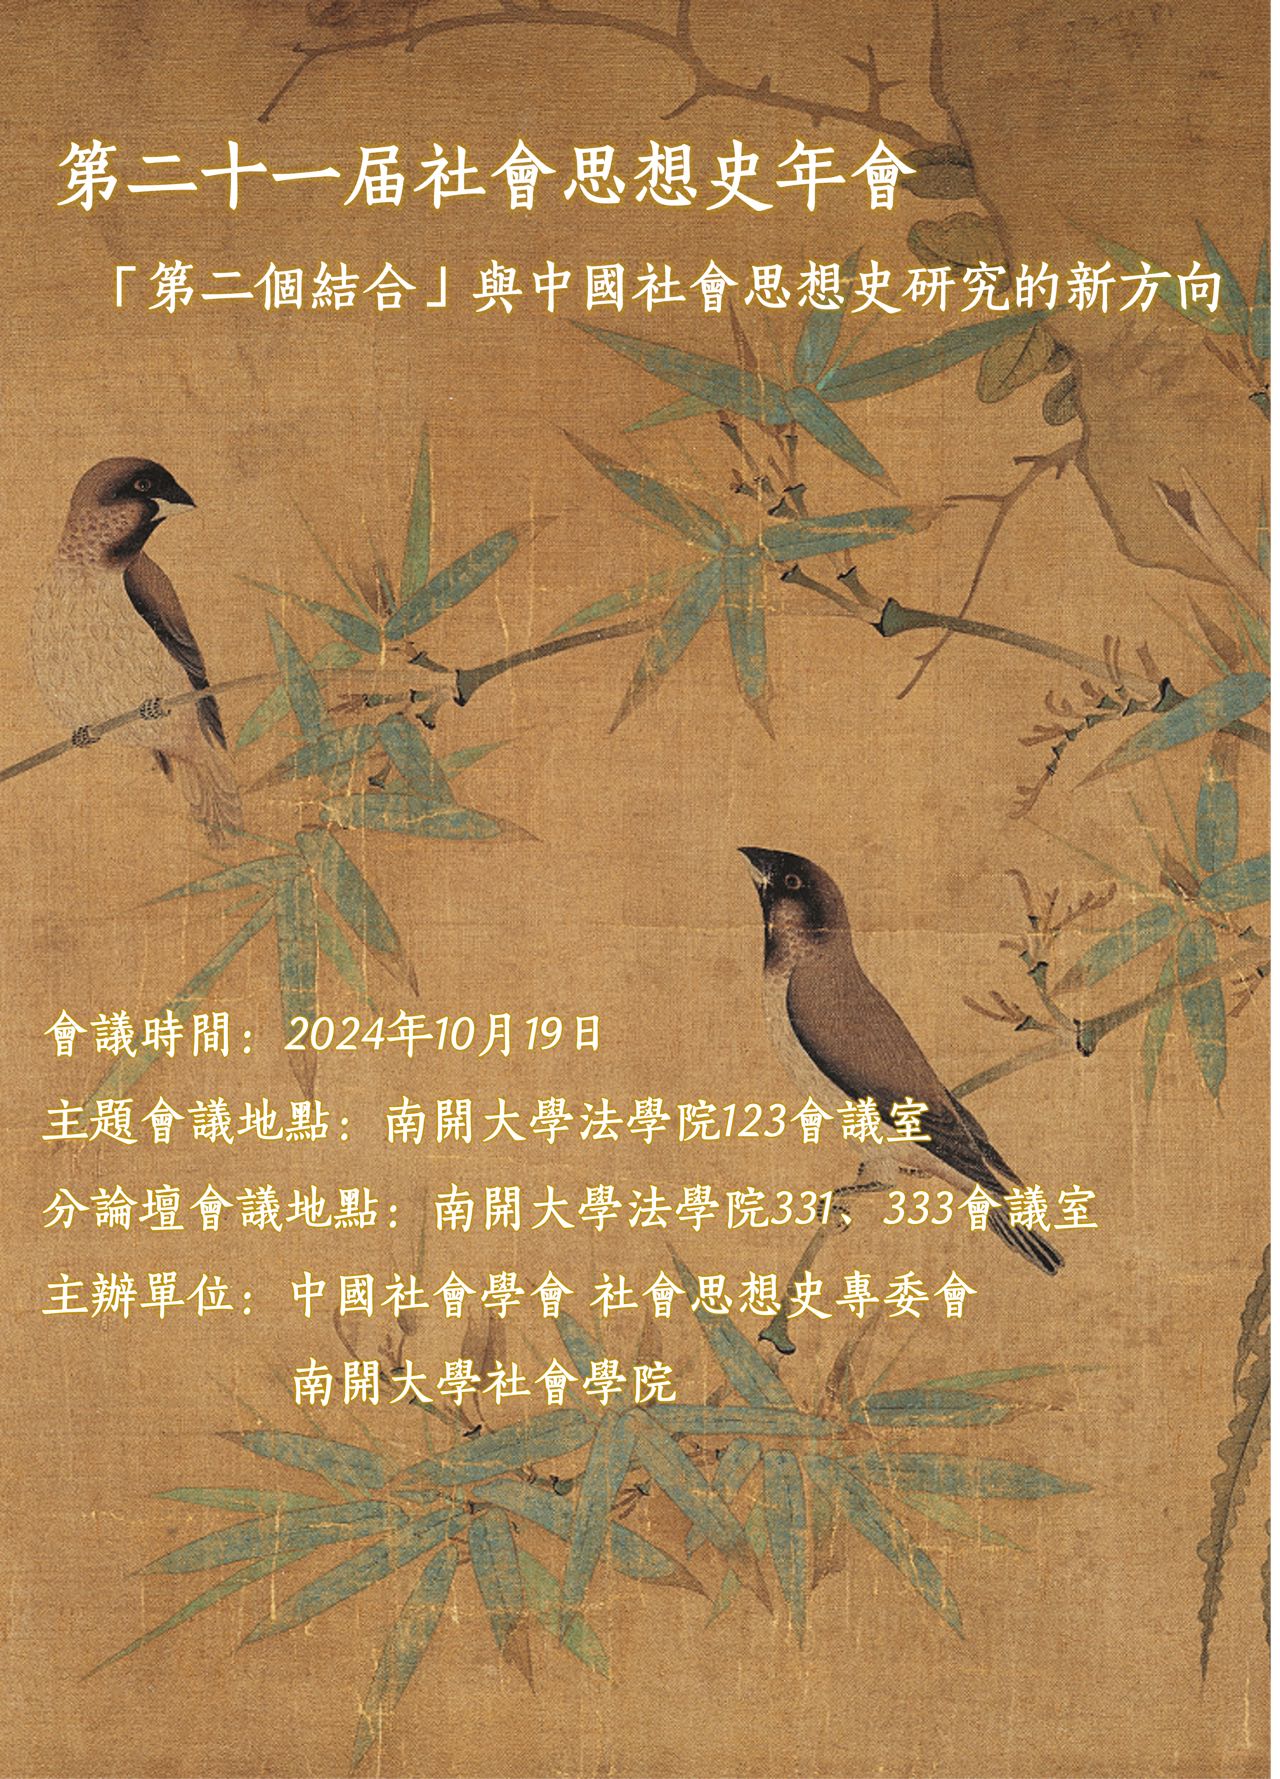 第二十一届社會思想史年會
「第二個結合」與中國社會思想史研究的新方向
會議時間：2024年10月19日
主題會議地點：南開大學法學院123會議室
分論壇會議地點：南開大學法學院331、333會議室
主辦單位：中國社會學會 社會思想史專委會
南開大學社會學院